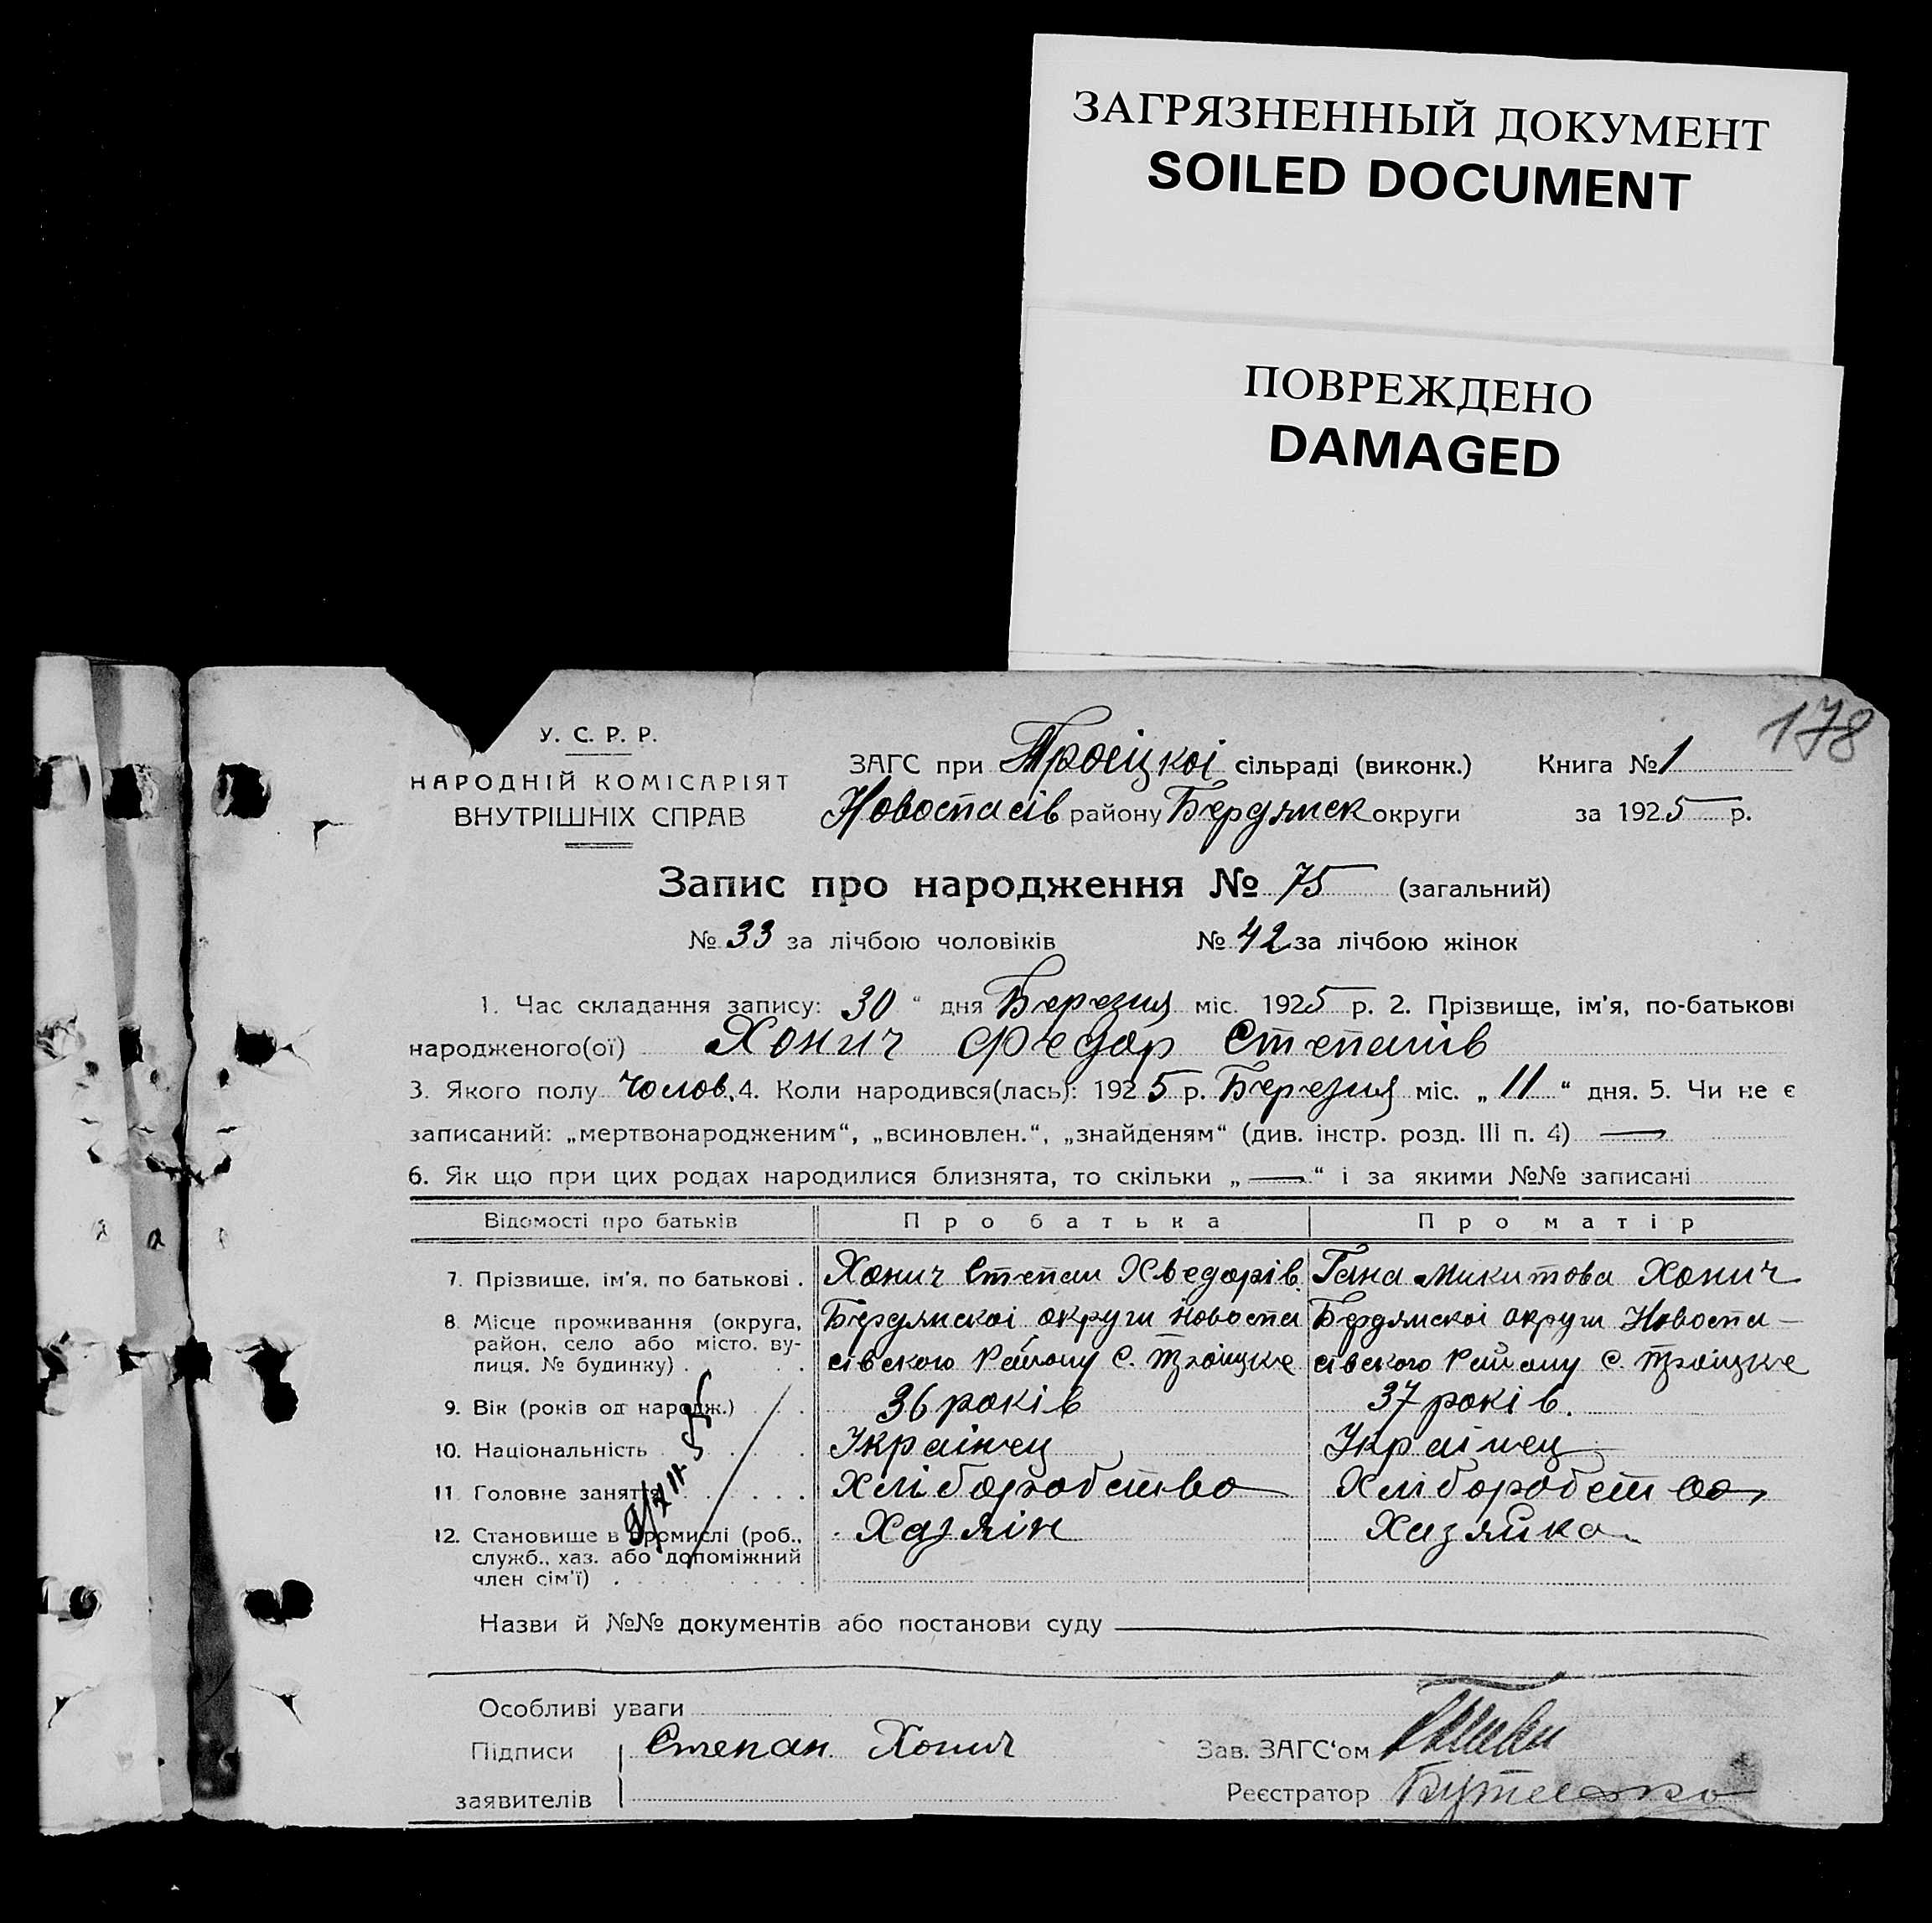 ЗАГРЯЗНЕННЫЙ ДОКУМЕНТ
SOILED DOCUMENT
ПОВРЕЖДЕНО
DAMAGED
178
У. С. Р. Р.
НАРОДНІЙ КОМІСАРІЯТ
ВНУТРІШНІХ СПРАВ
ЗАГС при Троіцкоі сільраді (виконк.) Книга № 1
Новоспасів району Бердянск округи за 1925 р.
Запис про народження № 75 (загальний)
№ 33 за лічбою чоловіків № 42 за лічбою жінок
1. Час складання запису: 30 “ дня Березня міс. 1925 р. 2. Прізвище, ім'я, по-батькові
народженого(ої) Хонич Федор Степанів
3. Якого полу Чолов. 4. Коли народився(лась): 1925 р. Березня міс. „ 11 “ дня. 5. Чи не є
записаний: „мертвонародженим“, „всиновлен.“, „знайденям“ (див. інстр. розд. III п. 4) —
6. Як що при цих родах народилися близнята, то скільки „ — “ і за якими №№ записані
Відомості про батьків Про батька Про матір
7. Прізвище, ім'я, по батькові . Хонич Степан Хведорів. Гана Микитова Хонич
8. Місце проживання (округа, Бердянскоі округи Новоспа Бердянскоі округи Новоспа–
район, село або місто, ву-
лиця, № будинку) . . . сівского Району с. Троіцке сівского Району с. Троіцке
9. Вік (років од народж.) . . 36 років 37 років.
10. Національність . . . . Украінец Украінец
11. Головне заняття . . . . Хліборобство Хліборобство
12. Становище в промислі (роб., Хазяін Хазяйка
служб., хаз. або допоміжний
член сім'ї) . . . . . . . .
Назви й №№ документів або постанови суду
Особливі уваги
Підписи Степан Хонич Зав. ЗАГС'ом
заявителів Реєстратор